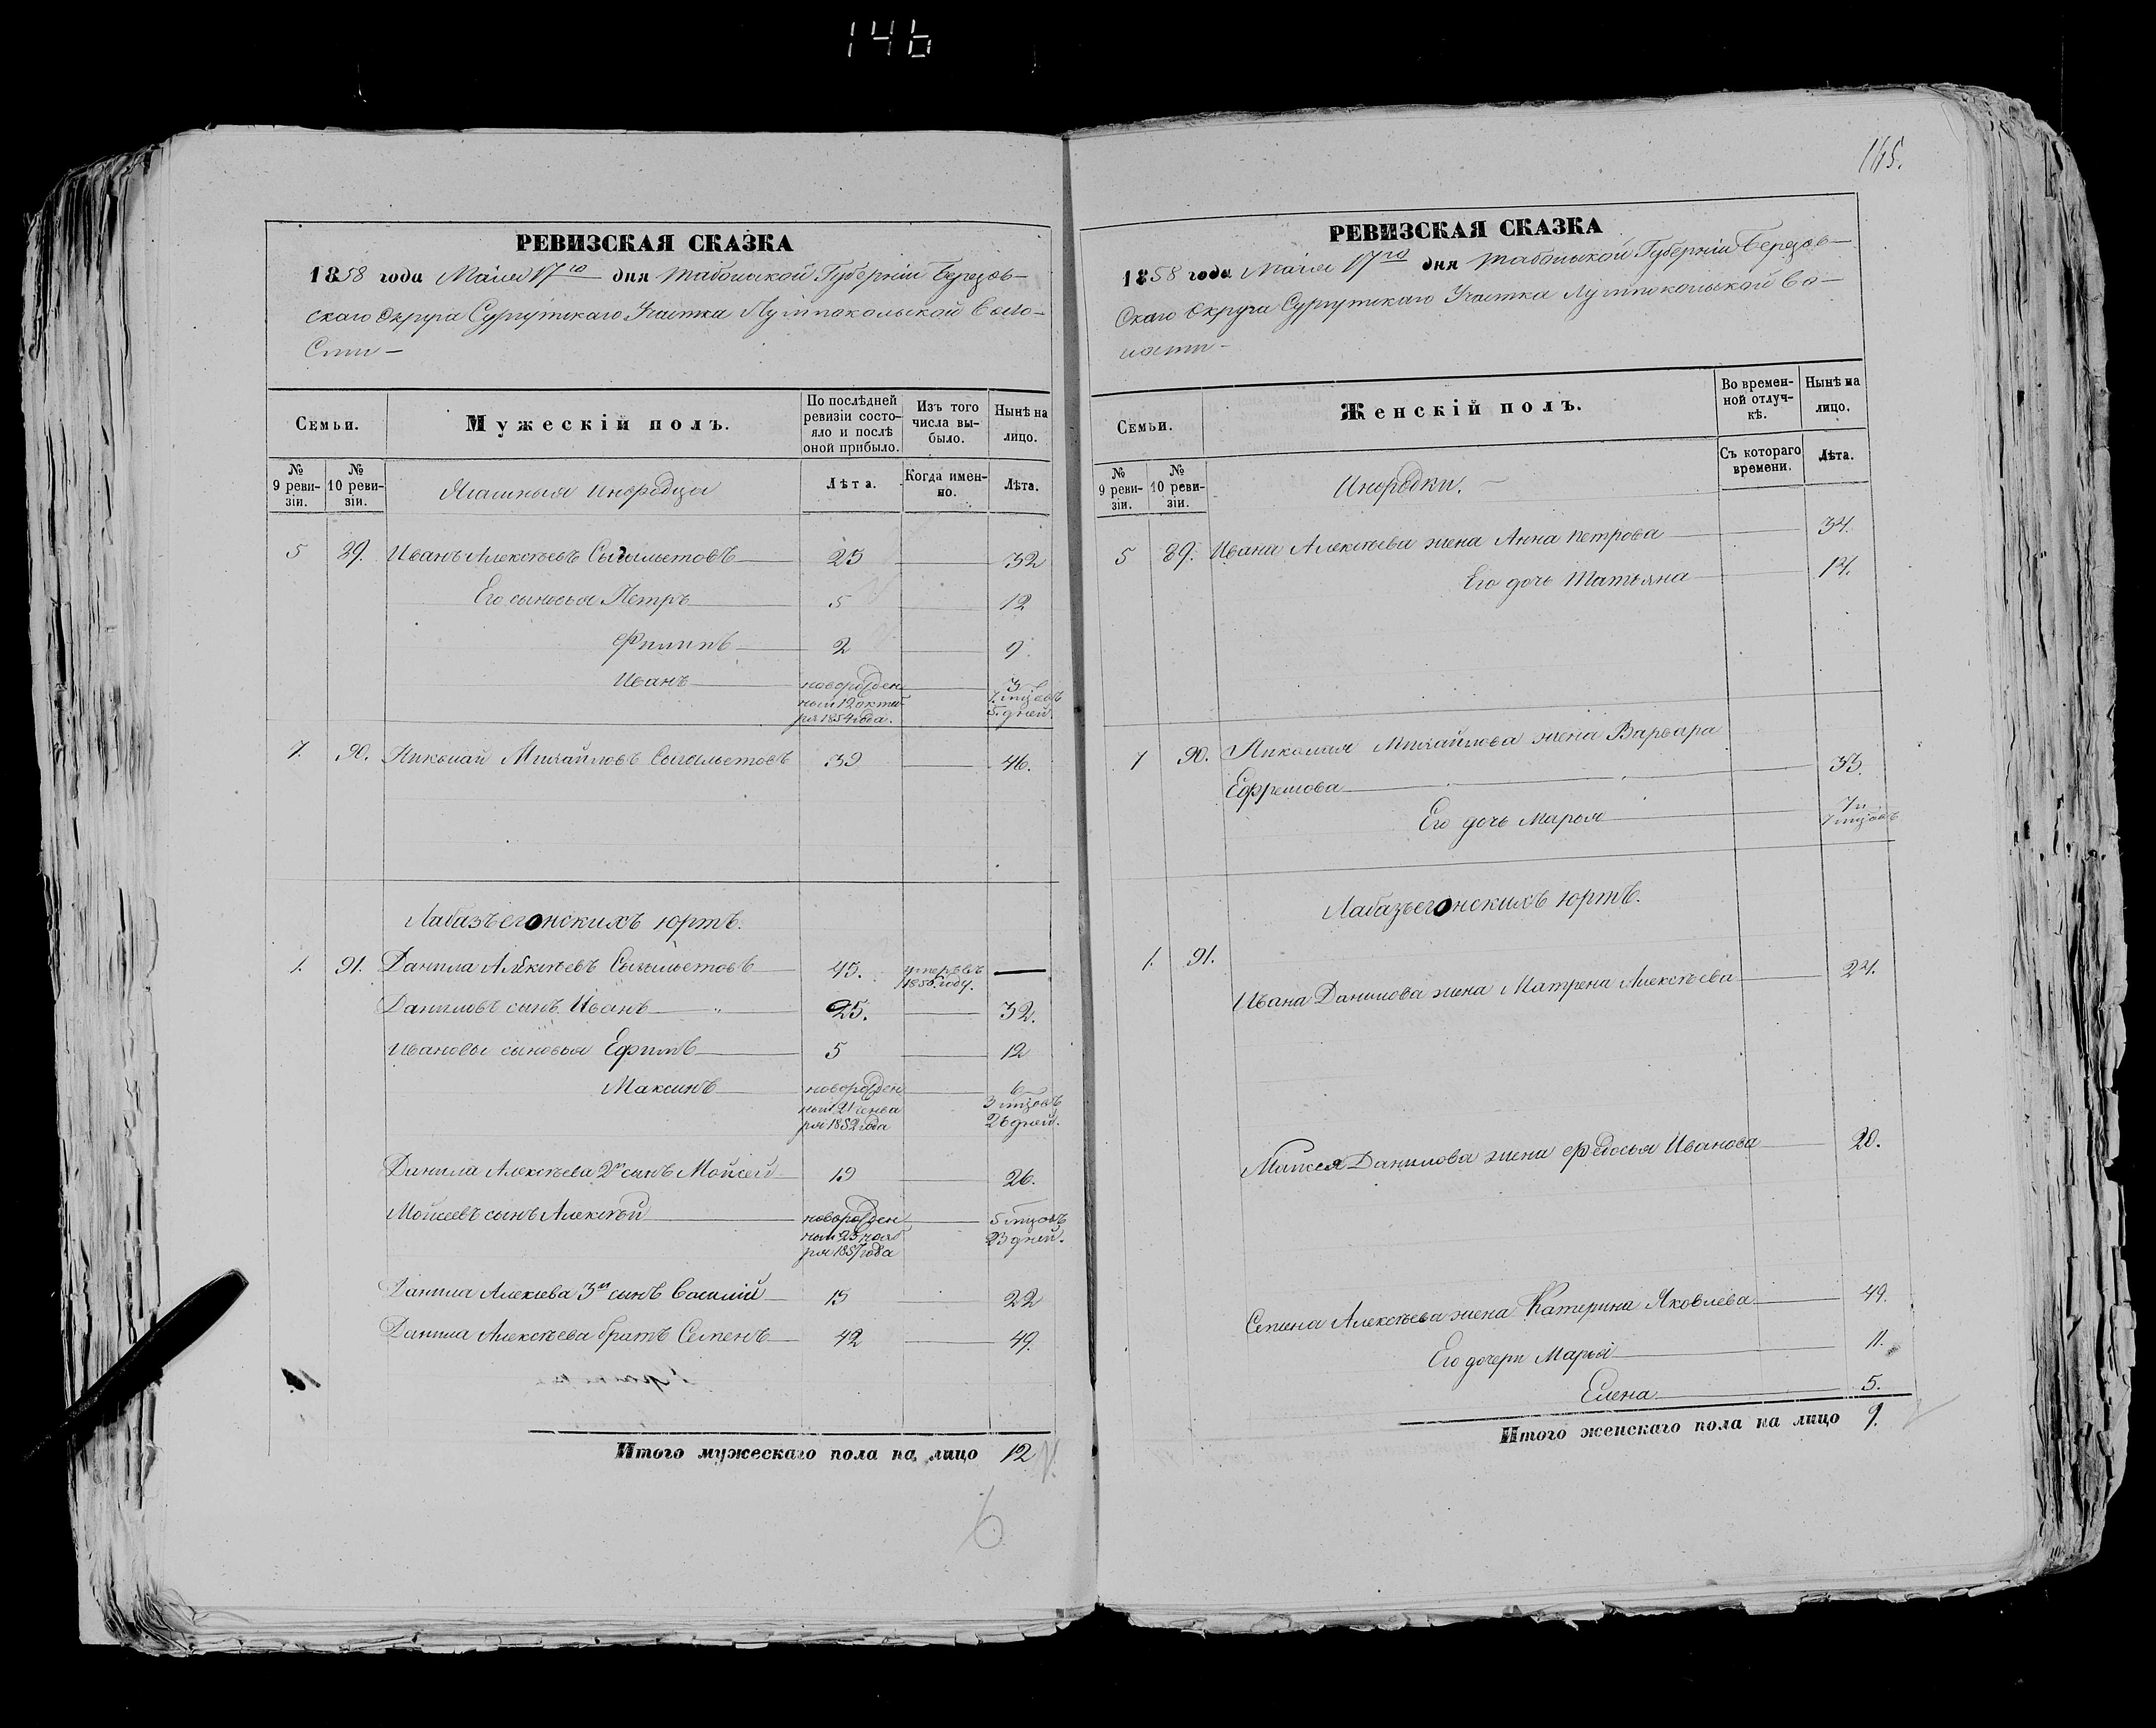 146
165.
РЕВИЗСКАЯ СКАЗКА
1858 года Маія 17го дня Тобольской Губерніи Березов-
скаго Округа Сургутскаго Участка Лумпокольской Воло-
сти -
Семьи.
Мужескій полъ.
По послѣдней ревизіи состояло и послѣ оной прибыло.
Изъ того числа выбыло.
Нынѣ на лицо.
№ 9 ревизіи.
№ 10 ревизіи.
Ясашныя инородцы
Лѣта.
Когда именно.
Лѣта.
5 89. Иванъ Алексѣевъ 25 32
Его сыновья Петръ 5 12
Филипъ 2 9.
Иванъ новорожден 3
ный 12 октяб 7. мцовъ
ря 1854 года. 5. дней.
7. 90. Николай Михайловъ 39 46.
Лабазъегонскихъ юртъ.
1. 91. Данила Алексѣевъ 45. умеръ въ
185 году.
Даниловъ сынъ Иванъ 25. 32.
Ивановы сыновья Ефимъ 5 12
Максимъ новорожден 6
ный 21 генва 3 мцовъ
ря 1852 года 26 дней.
Данила Алексѣева 2й сынъ Мойсей 19 26.
Мойсеевъ сынъ Алексѣй новорожден 5 мцовъ
ный 25 нояб 23 дней.
ря 1857 года
Данила Алексѣева 3й сынъ Василій 15 22
Данила Алексѣева братъ Семенъ 42 49.
Итого мужескаго пола на лицо 12
6
РЕВИЗСКАЯ СКАЗКА
1858 года Маія 17го дня Тобольской Губерніи Березов-
скаго Округа Сургутскаго Участка Лумпокольской Во-
лости -
Семьи.
Женскій полъ.
Во временной отлучкѣ.
Нынѣ на лицо.
№ 9 ревизіи.
№ 10 ревизіи.
Инородки.
Съ котораго времени.
Лѣта.
5 89. Ивана Алексѣева жена Анна Петрова 34.
Его дочь Татьяна 14.
7 90. Николая Михайлова жена Варвара
Ефремова 33.
Его дочь Марья 7 и
7 мцовъ
Лабазъегонскихъ юртъ.
1. 91.
Ивана Данилова жена Матрена Алексѣева 24.
Мойсея Данилова жена Федосья Иванова 20.
Семена Алексѣева жена Катерина Яковлева 49.
Его дочери Марья 11.
Елена 5.
Итого женскаго пола на лицо 9.